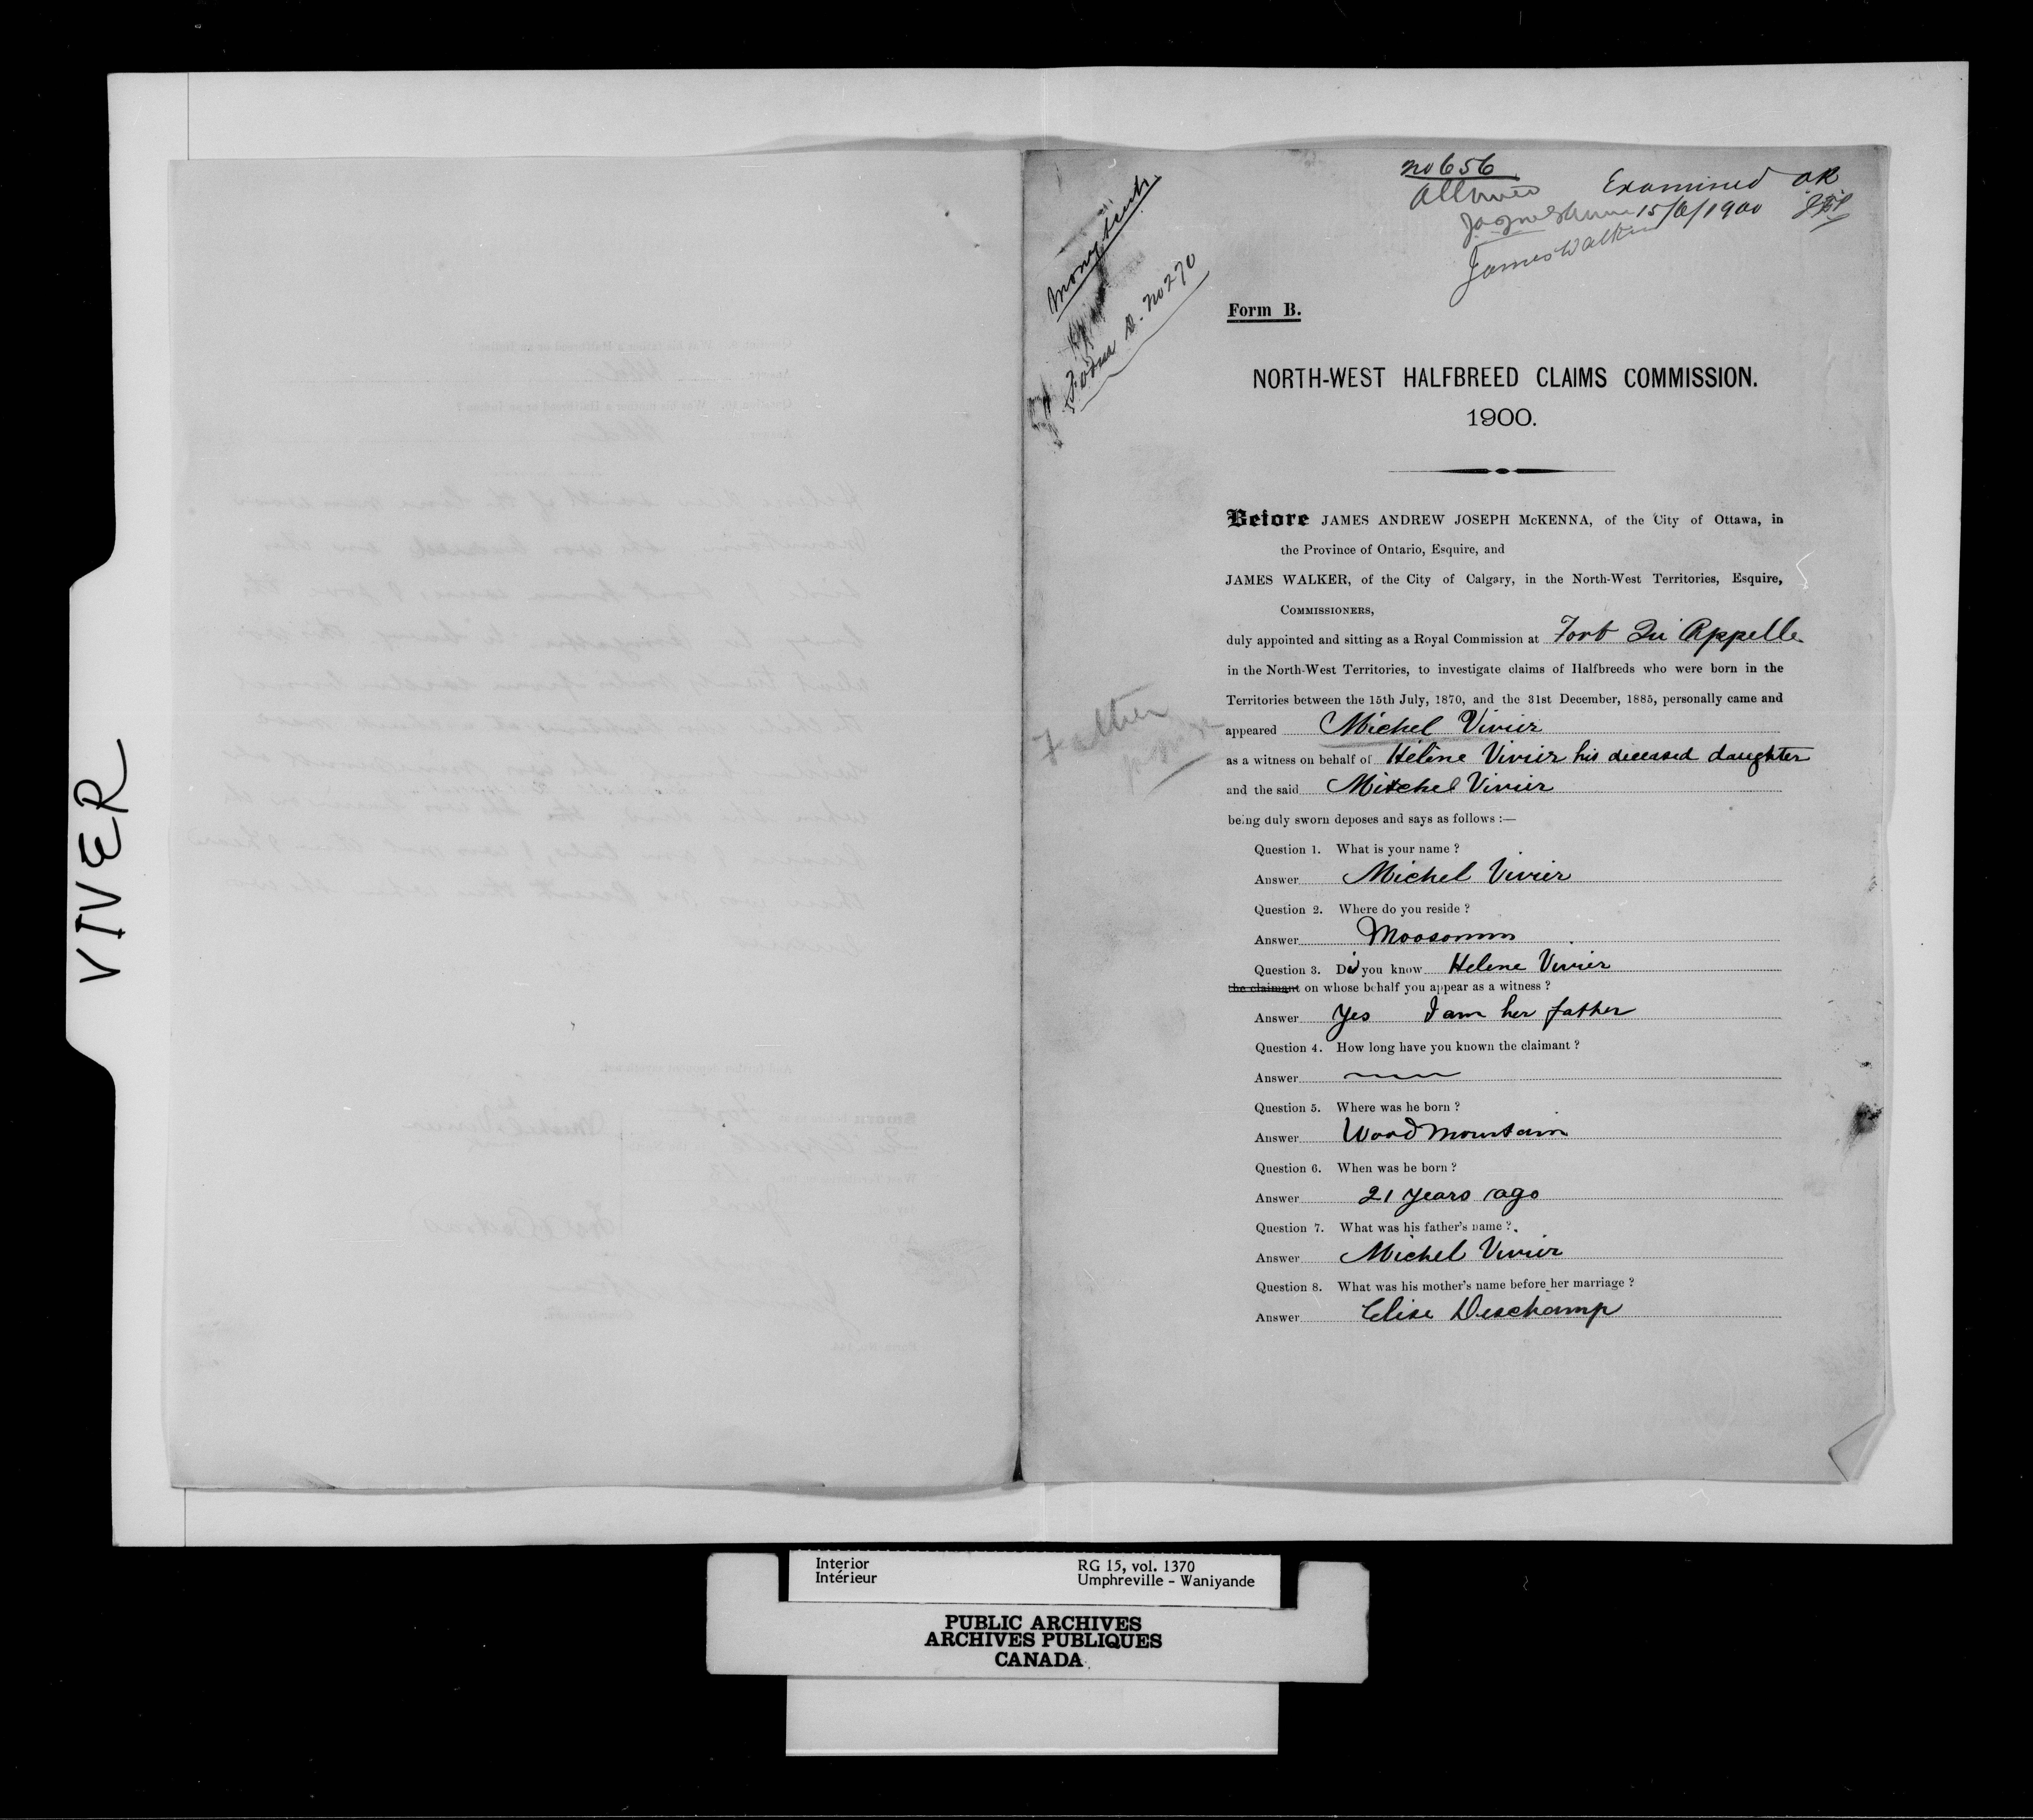 VIVER
No 656
Allowed
Examined OK
15/6/1900
James Walker
Money Scrip
Form D. No 270
Form B.
NORTH-WEST HALFBREED CLAIMS COMMISSION.
1900.
Before JAMES ANDREW JOSEPH McKENNA, of the City of Ottawa, in
the Province of Ontario, Esquire, and
JAMES WALKER, of the City of Calgary, in the North-West Territories, Esquire,
COMMISSIONERS,
duly appointed and sitting as a Royal Commission at Fort Qu'Appelle
in the North-West Territories, to investigate claims of Halfbreeds who were born in the
Territories between the 15th July, 1870, and the 31st December, 1885, personally came and
appeared Michel Vivier
Father
as a witness on behalf of Hélène Vivier his deceased daughter
and the said Mitchel Vivier
being duly sworn deposes and says as follows :—
Question 1. What is your name ?
Answer Michel Vivier
Question 2. Where do you reside ?
Answer Moosomin
Question 3. Did you know Helene Vivier
the claimant on whose behalf you appear as a witness ?
Answer Yes I am her father
Question 4. How long have you known the claimant ?
Answer
Question 5. Where was he born ?
Answer Wood Mountain
Question 6. When was he born ?
Answer 21 years ago
Question 7. What was his father's name ?
Answer Michel Vivier
Question 8. What was his mother's name before her marriage ?
Answer Elise Deschamp
Interior
Intérieur
RG 15, vol. 1370
Umphreville - Waniyande
PUBLIC ARCHIVES
ARCHIVES PUBLIQUES
CANADA